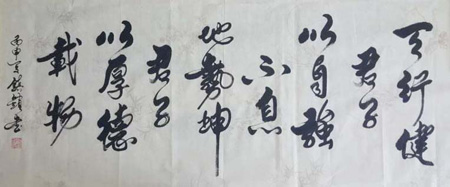 天行健
君子
以自强
不息
地势坤
君子
以厚德
載物
丙申
书